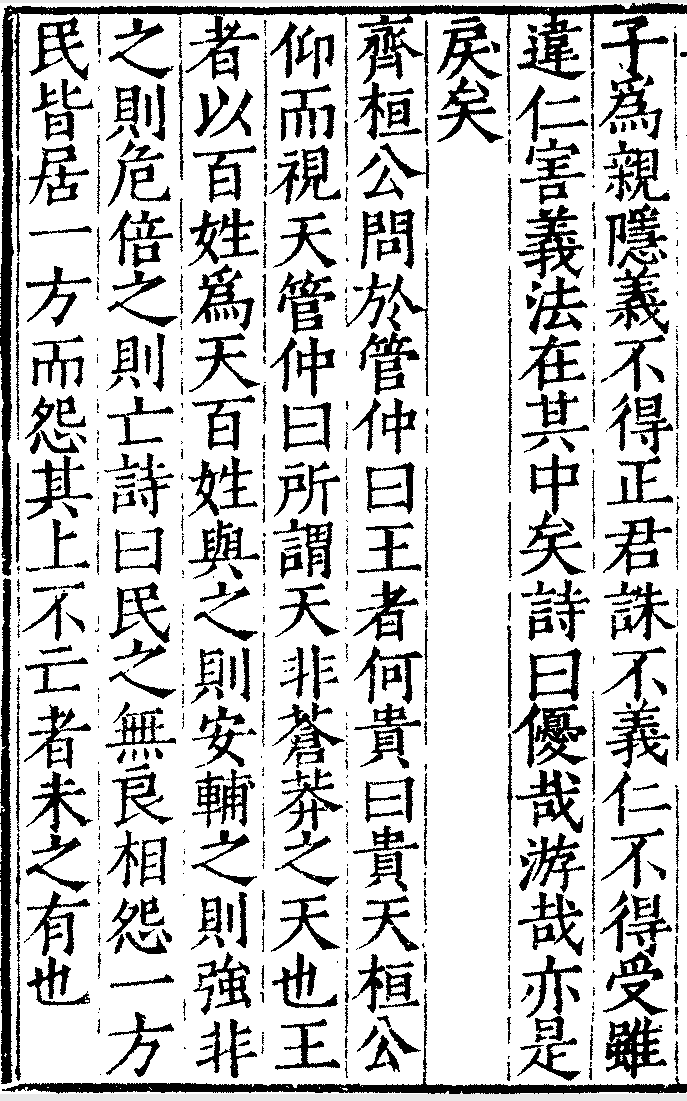 子為親隱義不得正君誅不義仁不得受雖
違仁害義法在其中矣詩曰優哉游哉亦是
戾矣
齊桓公問於管仲曰王者何貴曰貴天桓公
仰而視天管仲曰所謂天非蒼莽之天也王
者以百姓為天百姓與之則安輔之則強非
之則危倍之則亡詩曰民之無良相怨一方
民皆居一方而怨其上不亡者未之有也